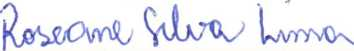 Roseane Silva Lima